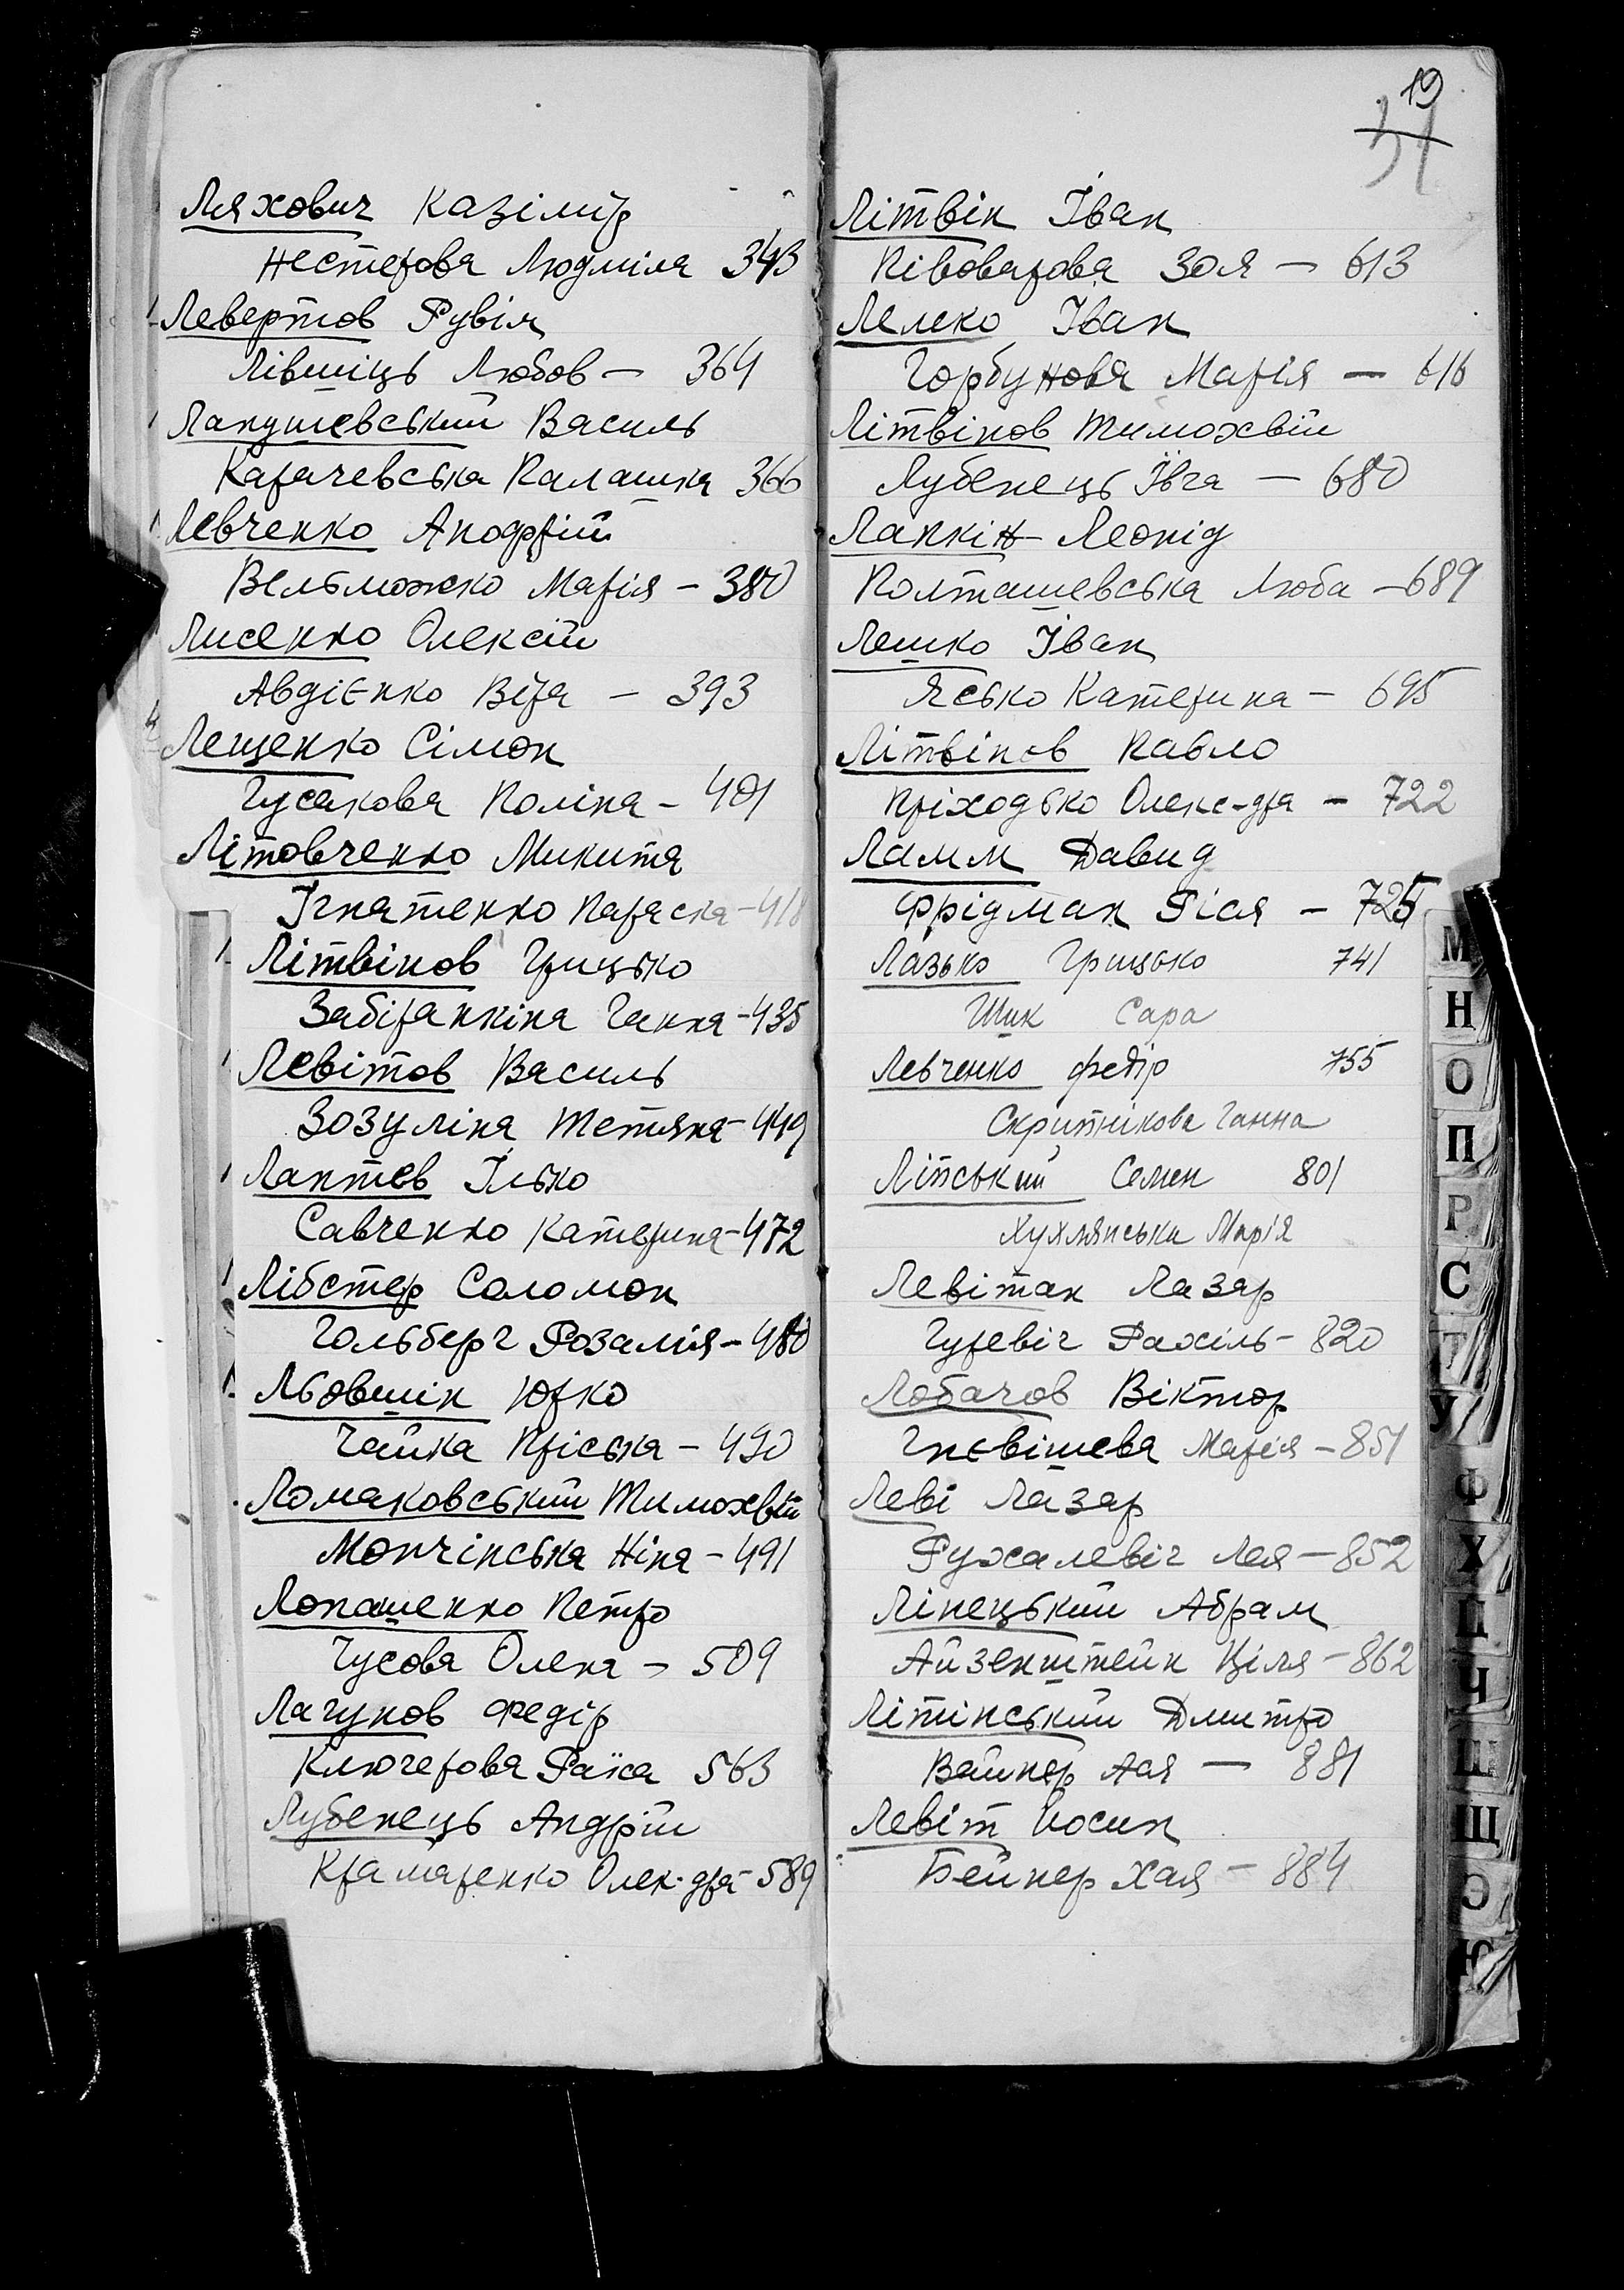 Ляхович Казімір
Нестерова Людміла 343
Левертов Рувім
Лівшіць Любов — 364
Лапушевський Василь
Карачевська Палашка 366
Левченко Анодрій
Вельможко Марія — 380
Лисенко Олексій
Авдієнко Віра — 393
Лещенко Сімон
Гусакова Поліна — 401
Літовченко Микита
Ігнатенко Параска — 418
Літвінов Грицько
Забіранкіна Ганна — 435
Левітов Василь
Зозуліна Тетяна — 449
Лаптев Ілько
Савченко Катерина — 472
Лібстер Соломон
Гольберг Розалія — 480
Львовшін Юрко
Чайка Пріська — 490
Ломаковський Тимохвій
Мончінська Ніна — 491
Лопашенко Петро
Чусова Олена — 509
Лагунов Федір
Ключерова Раїса 563
Лубенець Андрій
Крамаренко Олек-дра — 589
19
Літвін Іван
Півоварова Зоя — 613
Лелеко Іван
Горбунова Марія — 616
Літвінов Тимохвій
Лубенець Івга — 680
Лапкін Леонід
Полташевська Люба — 689
Лешко Іван
Ясько Катерина — 695
Літвінов Павло
Пріходько Олекс-дра — 722
Ламм Давид
Фрідман Рися — 725
Лазько Грицько 741
Шик Сара
Левченко Федір 755
Скритнікова Ганна
Літський Семен 801
Хухлянська Марія
Левітан Лазар
Гуревіч Рахіль — 820
Лобачов Віктор
Гнєвішева Марія — 851
Леві Лазар
Ружалевіч Лея — 852
Ліпецький Абрам
Айзенштейн Ціля — 862
Літінський Дмитро
Вайнер Ася — 881
Левіт Йосип
Бейнер Хая — 884
М
Н
О
П
Р
С
Т
У
Ф
Х
Ц
Ч
Ш
Щ
Э
Ю